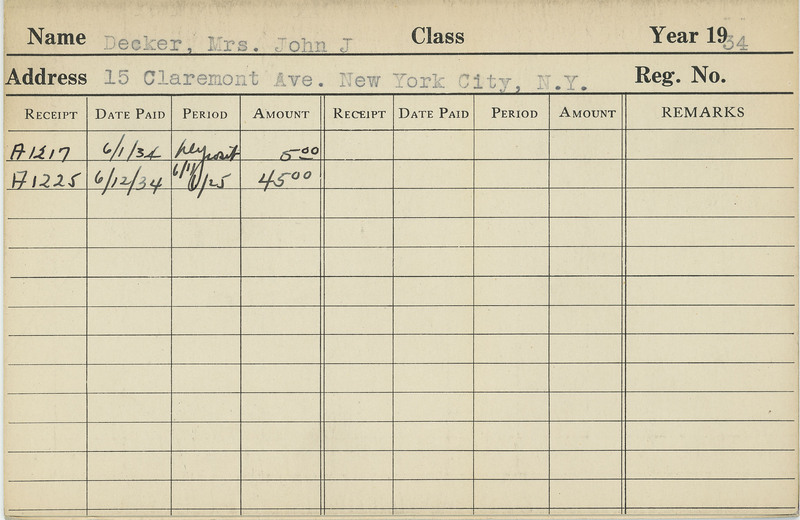 Name Decker, Mrs. John J Class Year 1934
Address 15 Claremont Ave. New York City, N.Y. Reg. No.
RECEIPT DATE PAID PERIOD AMOUNT RECEIPT DATE PAID PERIOD AMOUNT REMARKS
A1217 6/1/34 Deposit 5.00
A1225 6/12/34 6/11 6/25 45.00